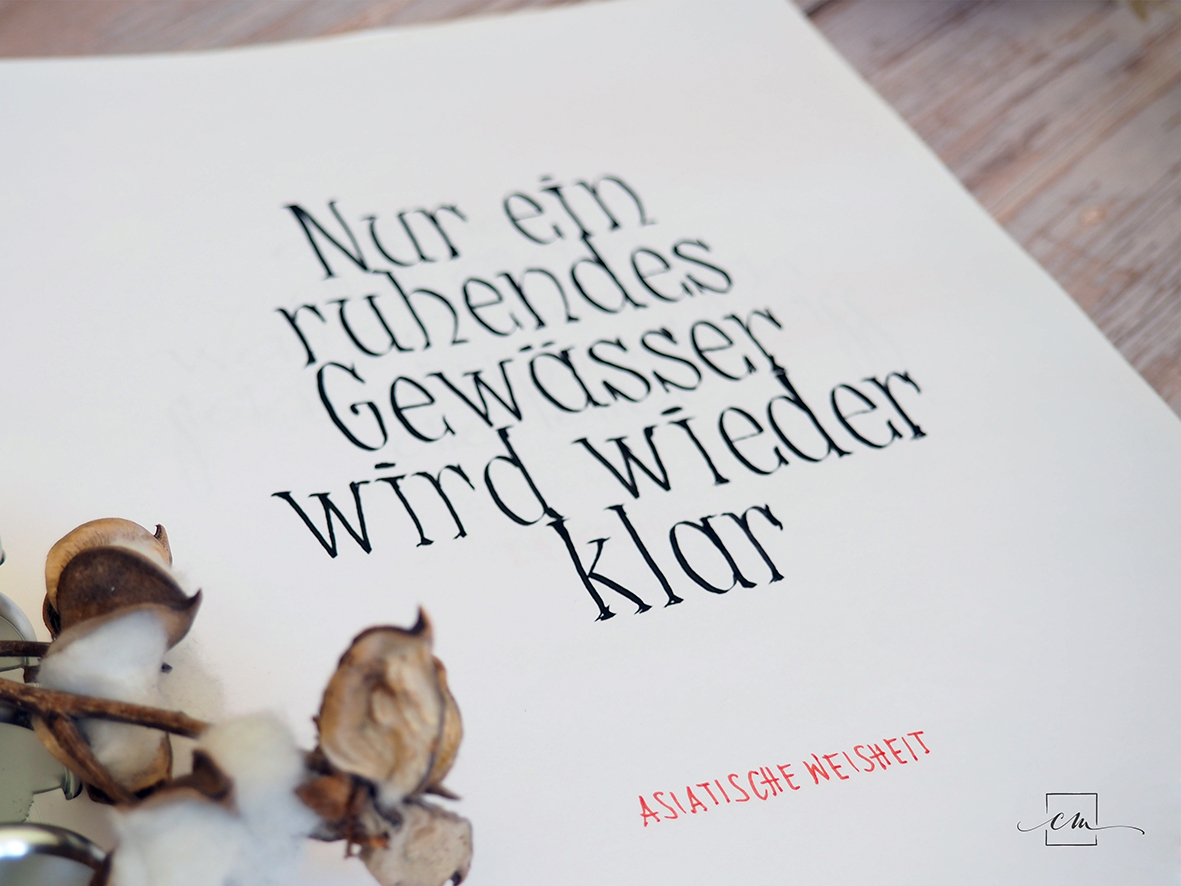 Nur ein
ruhendes
Gewässer
wird wieder
klar
ASIATISCHE WEISHEIT
cm